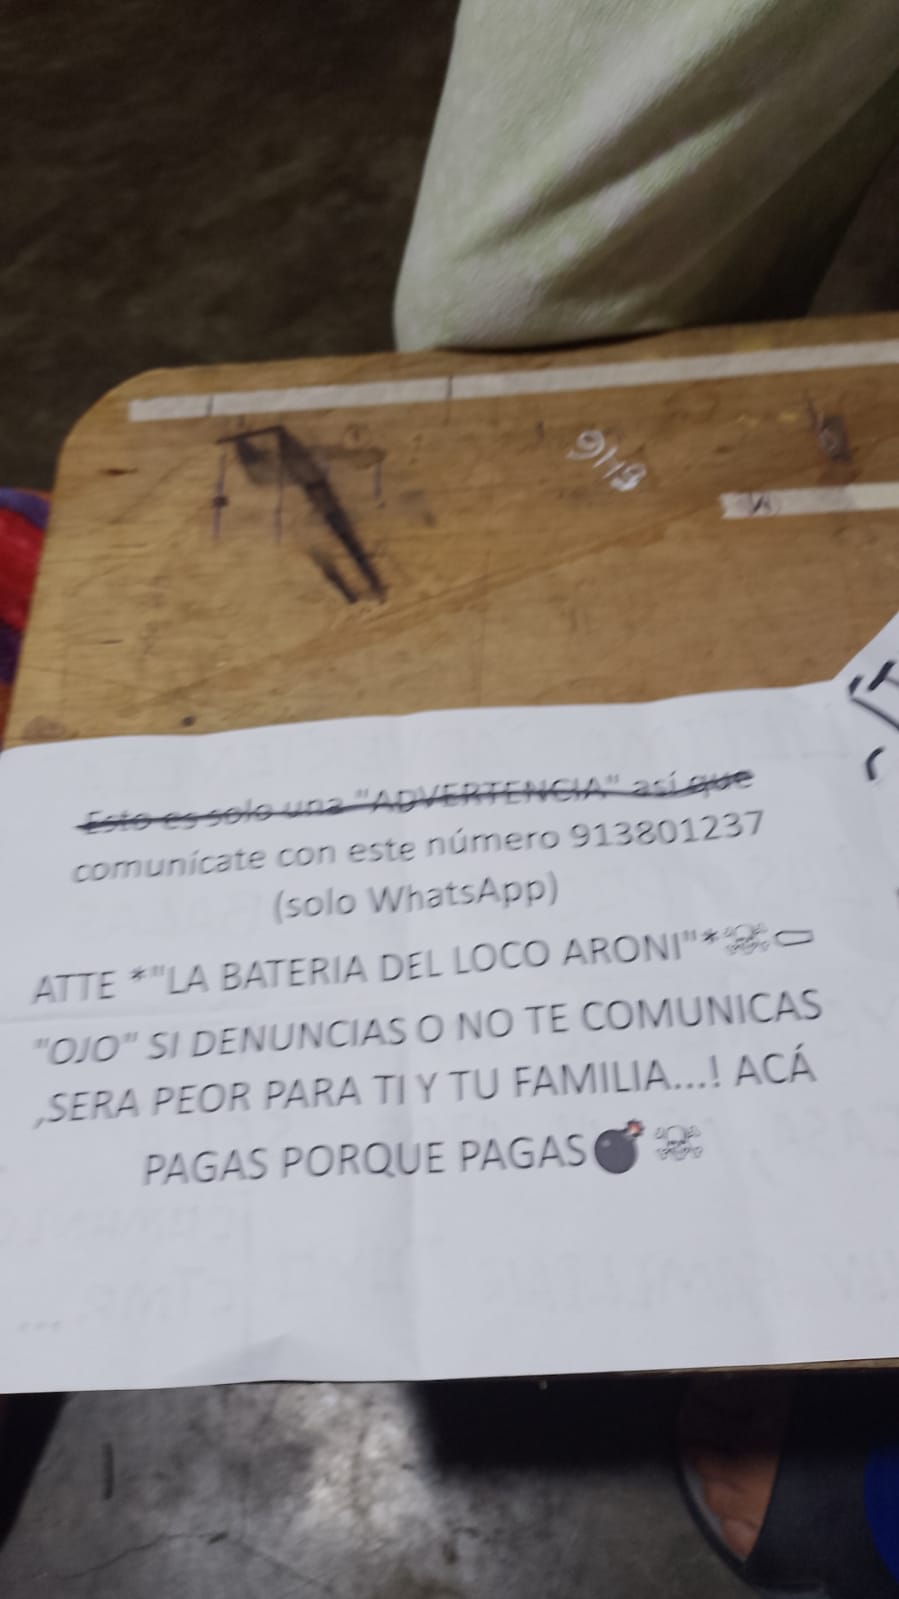 9113
Esto es solo una "ADVERTENCIA" así que
comunícate con este número 913801237
(solo WhatsApp)
ATTE *"LA BATERIA DEL LOCO ARONI"*☠️⚰️
"OJO" SI DENUNCIAS O NO TE COMUNICAS
,SERA PEOR PARA TI Y TU FAMILIA...! ACÁ
PAGAS PORQUE PAGAS💣☠️